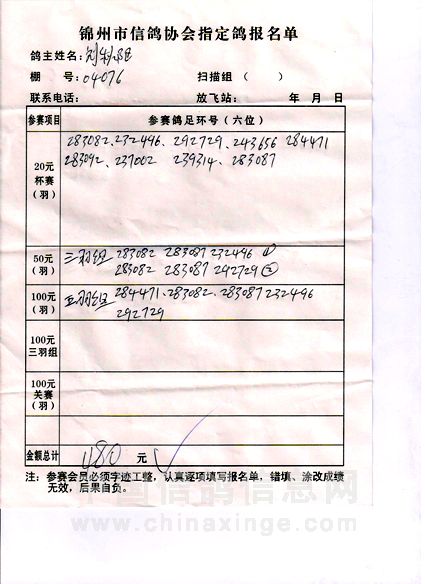 锦州市信鸽协会指定鸽报名单
鸽主姓名:
棚 号: 04076 扫描组 ( )
联系电话: 放飞站: 年 月 日
参赛项目 参赛鸽足环号(六位)
20元杯赛(羽) 283082、232496、292729、243656 284471
283092、237002 239314、283087
50元(羽) 三羽组 283082 283087 232496 ①
283082 283087 292729 ②
100元(羽) 五羽组 284471、283082、283087 232496
292729
100元三羽组
100元关赛(羽)
金额总计 480 元
注:参赛会员必须字迹工整,认真逐项填写报名单,错填、涂改成绩
无效,后果自负。
中国信鸽信息网
www.chinaxinge.com